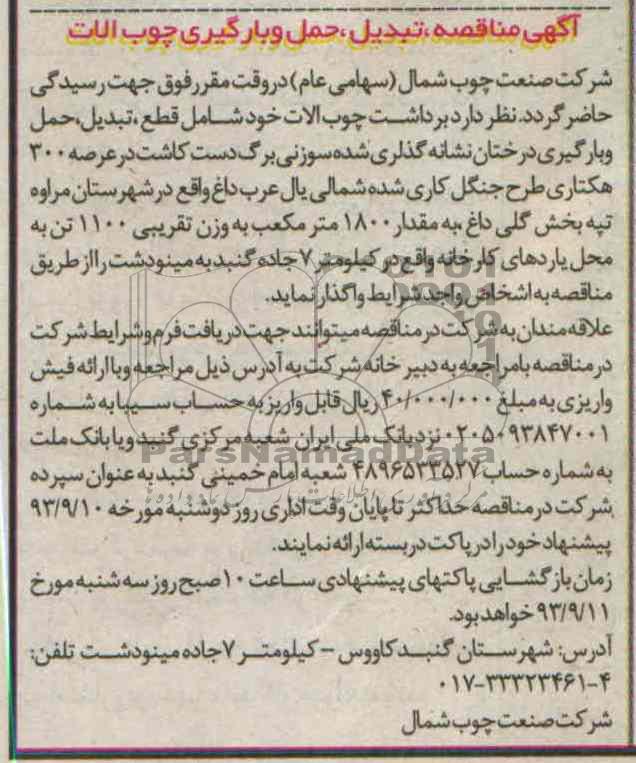 آگهی مناقصه،تبدیل،حمل وبارگیری چوب الات
شرکت صنعت چوب شمال (سهامی عام) دروقت مقررفوق جهت رسیدگی
حاضر گردد. نظر دارد برداشت چوب الات خود شامل قطع،تبدیل،حمل
وبارگیری درختان نشانه گذاری شده سوزنی برگ دست کاشت در عرصه ۳۰۰
هکتاری طرح جنگل کاری شده شمالی یال عرب داغ واقع در شهرستان مراوه
تپه بخش گلی داغ ،به مقدار ۱۸۰۰ متر مکعب به وزن تقریبی ۱۱۰۰ تن به
محل یاردهای کارخانه واقع در کیلومتر ۷ جاده گنبد به مینودشت رااز طریق
مناقصه به اشخاص واجد شرایط واگذار نماید.
علاقه مندان به شرکت در مناقصه میتوانند جهت دریافت فرم وشرایط شرکت
در مناقصه بامراجعه به دبیر خانه شرکت به آدرس ذیل مراجعه وباارائه فیش
واریزی به مبلغ ۴۰/۰۰۰/۰۰۰ ریال قابل واریز به حساب سیبا به شماره
۰۲۰۵۰۹۳۸۴۷۰۰۱ نزد بانک ملی ایران شعبه مرکزی گنبد ویا بانک ملت
به شماره حساب ۴۸۹۶۵۳۳۵۲۷ شعبه امام خمینی گنبد به عنوان سپرده
شرکت در مناقصه حداکثر تا پایان وقت اداری روز دوشنبه مورخه ۹۳/۹/۱۰
پیشنهاد خود را در پاکت در بسته ارائه نمایند.
زمان بازگشایی پاکتهای پیشنهادی ساعت ۱۰ صبح روز سه شنبه مورخ
۹۳/۹/۱۱ خواهد بود.
آدرس: شهرستان گنبد کاووس – کیلومتر ۷ جاده مینودشت تلفن:
۰۱۷-۳۳۳۲۳۴۶۱-۴
شرکت صنعت چوب شمال
ParsNamadData